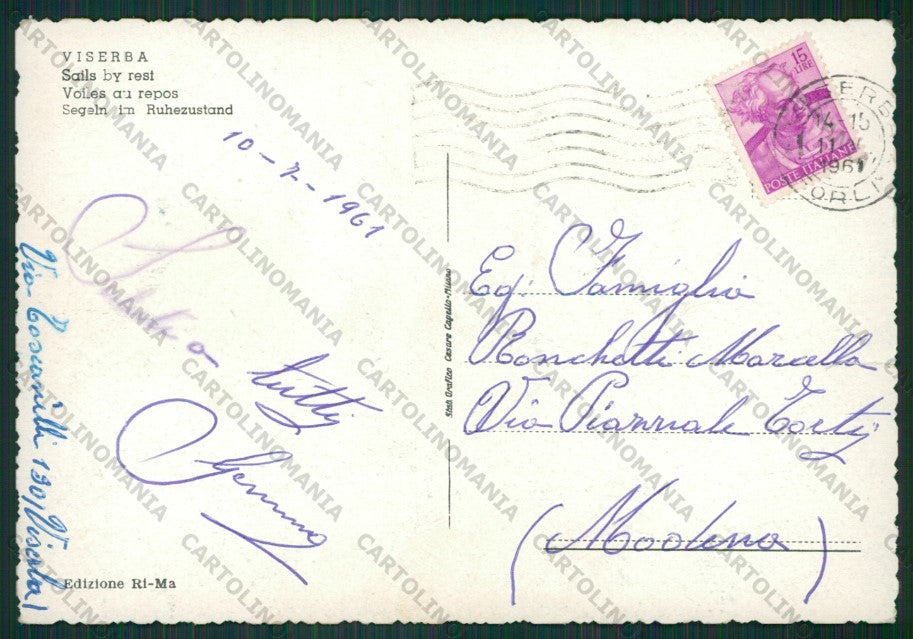 VISERBA
Sails by rest
Voiles au repos
Segeln im Ruhezustand
10-7-1961
Saluti a
tutti
Gemma
Via Toscanelli 190, Viserba
Edizione Ri-Ma
Stab Grafico Cesare Capello-Milano
15
LIRE
POSTE ITALIANE
14-15
11
1961
FORLI
Eg: Famiglia
Ronchetti Marcello
Via Piannale Torti,
(Modena)
CARTOLINOMANIA